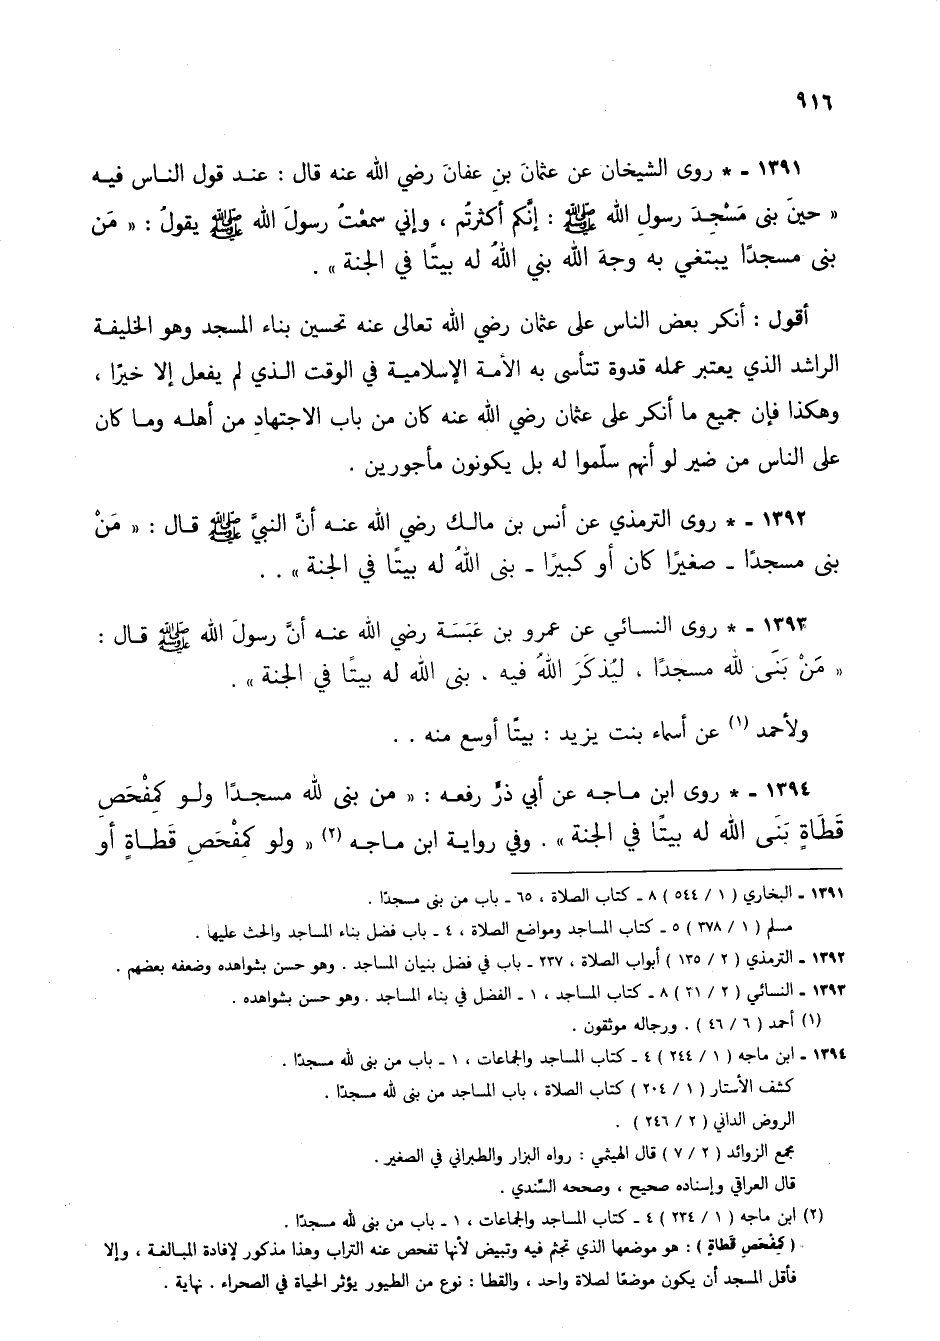 ٩١٦
١٣٩١ - * روى الشيخان عن عثمانَ بنِ عفانَ رضي الله عنه قال : عنـد قول النـاس فيـه
« حينَ بنى مَسْجِـدَ رسولِ الله ﷺ : إنَّكم أكثرتُم ، وإني سمعْتُ رسولَ الله ﷺ يقولُ : « مَن
بنى مسجدًا يبتغي به وجهَ الله بني اللهُ له بيتًا في الجنة » .
أقول : أنكر بعض الناس على عثمان رضي الله تعالى عنه تحسين بناء المسجد وهو الخليفـة
الراشد الذي يعتبر عمله قدوة تتأسى به الأمـة الإسلاميـة في الوقت الـذي لم يفعل إلا خيرًا ،
وهكذا فإن جميع ما أنكر على عثمان رضي الله عنه كان من باب الاجتهادِ من أهلـه ومـا كان
على الناس من ضير لو أنهم سلّموا له بل يكونون مأجورين .
١٣٩٢ - * روى الترمذي عن أنس بن مالـك رضي الله عنـه أنَّ النبيَّ ﷺ قـال : « مَنْ
بنى مسجدًا - صغيرًا كان أو كبيرًا - بنى اللهُ له بيتًا في الجنة » . .
١٣٩٣ - * روى النسـائي عن عمرو بن عَبَسَـة رضي الله عنـه أنَّ رسولَ الله ﷺ قـال :
« مَنْ بَنَى لله مسجدًا ، ليُذكَرَ اللهُ فيه ، بنى الله له بيتًا في الجنة » .
ولأحمد (١) عن أسماء بنت يزيد : بيتًا أوسع منه . .
١٣٩٤ - * روى ابن مـاجـه عن أبي ذرٍّ رفعـه : « من بنى لله مسجـدًا ولـو كَمِفْحَصِ
قَطَاةٍ بَنَى الله له بيتًا في الجنة » . وفي روايـة ابن مـاجـه (٢) « ولو كَمِفْحَصِ قَطـاةٍ أو
١٣٩١ - البخاري ( ١ / ٥٤٤ ) ٨ - كتاب الصلاة ، ٦٥ - باب من بنى مسجدًا .
مسلم ( ١ / ٣٧٨ ) ٥ - كتاب المساجد ومواضع الصلاة ، ٤ - باب فضل بناء المساجد والحث عليها .
١٣٩٢ - الترمذي ( ٢ / ١٣٥ ) أبواب الصلاة ، ٢٣٧ - باب في فضل بنيان المساجد . وهو حسن بشواهده وضعفه بعضهم .
١٣٩٣ - النسائي ( ٢ / ٣١ ) ٨ - كتاب المساجد ، ١ - الفضل في بناء المساجد . وهو حسن بشواهده .
(١) أحمد ( ٦ / ٤٦ ) . ورجاله موثقون .
١٣٩٤ - ابن ماجه ( ١ / ٢٤٤ ) ٤ - كتاب المساجد والجماعات ، ١ - باب من بنى لله مسجدًا .
كشف الأستار ( ١ / ٢٠٤ ) كتاب الصلاة ، باب المساجد من بنى لله مسجدًا .
الروض الداني ( ٢ / ٢٤٦ ) .
مجمع الزوائد ( ٢ / ٧ ) قال الهيثمي : رواه البزار والطبراني في الصغير .
قال العراقي وإسناده صحيح ، وصححه السِّندي .
(٢) ابن ماجه ( ١ / ٢٣٤ ) ٤ - كتاب المساجد والجماعات ، ١ - باب من بنى لله مسجدًا .
( كَمِفْحَصِ قَطاةٍ ) : هو موضعها الذي تجثم فيه وتبيض لأنها تفحص عنه التراب وهذا مذكور لإفادة المبـالغـة ، وإلا
فأقل المسجد أن يكون موضعًا لصلاة واحد ، والقطا : نوع من الطيور يؤثر الحياة في الصحراء . نهاية .